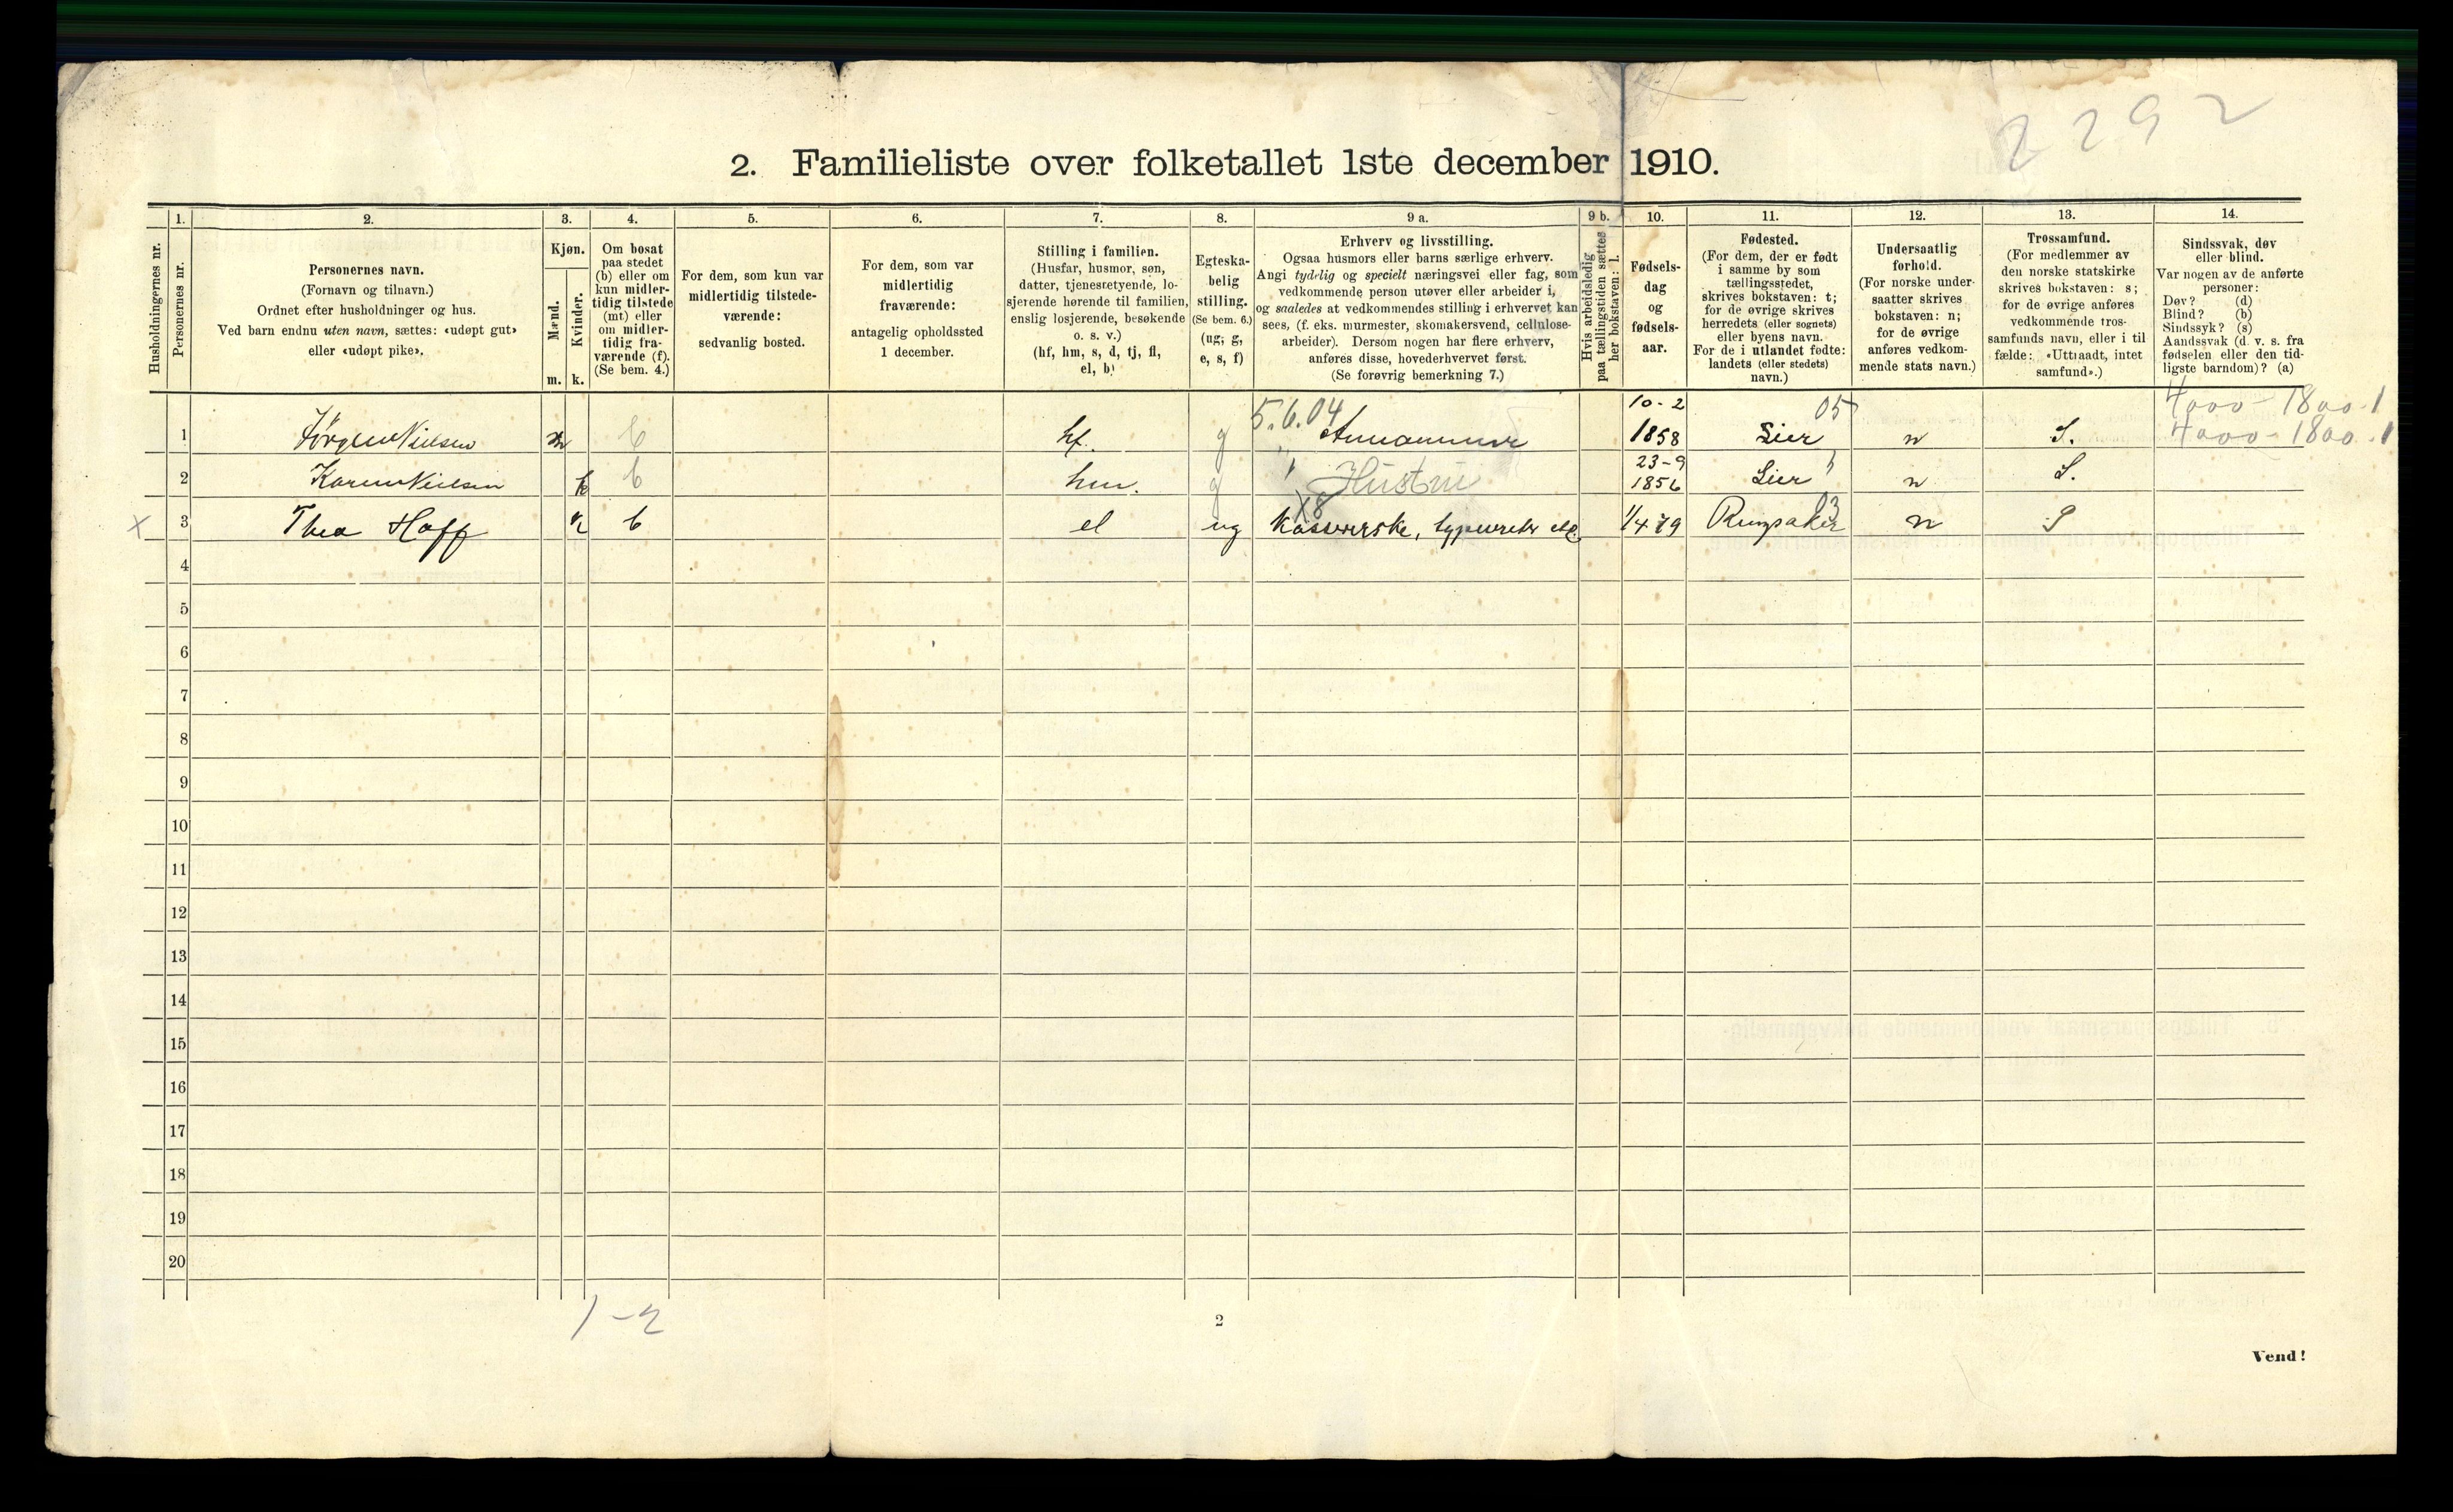 2292
2. Familieliste over folketallet 1ste december 1910.
Husholdningernes nr.
1.
Personernes nr.
2.
Personernes navn.
(Fornavn og tilnavn.)
Ordnet efter husholdninger og hus.
Ved barn endnu uten navn, sættes: «udøpt gut»
eller «udøpt pike».
3.
Kjøn.
Mænd.
m.
Kvinder.
k.
4.
Om bosat
paa stedet
(b) eller om
kun midler-
tidig tilstede
(mt) eller
om midler-
tidig fra-
værende (f).
(Se bem. 4.)
5.
For dem, som kun var
midlertidig tilstede-
værende:
sedvanlig bosted.
6.
For dem, som var
midlertidig
fraværende:
antagelig opholdssted
1 december.
7.
Stilling i familien.
(Husfar, husmor, søn,
datter, tjenestetyende, lo-
sjerende hørende til familien,
enslig losjerende, besøkende
o. s. v.)
(hf, hm, s, d, tj, fl,
el, b)
8.
Egteska-
belig
stilling.
(Se bem. 6.)
(ug, g,
e, s, f)
9 a.
Erhverv og livsstilling.
Ogsaa husmors eller barns særlige erhverv.
Angi tydelig og specielt næringsvei eller fag, som
vedkommende person utøver eller arbeider i,
og saaledes at vedkommendes stilling i erhvervet kan
sees, (f. eks. murmester, skomakersvend, cellulose-
arbeider). Dersom nogen har flere erhverv,
anføres disse, hovederhvervet først.
(Se forøvrig bemerkning 7.)
9 b.
Hvis arbeidsledig
paa tællingstiden sættes
her bokstaven: l.
10.
Fødsels-
dag
og
fødsels-
aar.
11.
Fødested.
(For dem, der er født
i samme by som
tællingsstedet,
skrives bokstaven: t;
for de øvrige skrives
herredets (eller sognets)
eller byens navn.
For de i utlandet fødte:
landets (eller stedets)
navn.)
12.
Undersaatlig
forhold.
(For norske under-
saatter skrives
bokstaven: n;
for de øvrige
anføres vedkom-
mende stats navn.)
13.
Trossamfund.
(For medlemmer av
den norske statskirke
skrives bokstaven: s;
for de øvrige anføres
vedkommende tros-
samfunds navn, eller i til-
fælde: «Uttraadt, intet
samfund».)
14.
Sindssvak, døv
eller blind.
Var nogen av de anførte
personer:
Døv? (d)
Blind? (b)
Sindssyk? (s)
Aandssvak (d. v. s. fra
fødselen eller den tid-
ligste barndom)? (a)
5.6.04 10-2 05 4000-1800.1
1 Jörgen Nielsen m b hf. g 1858 Lier n S. 4000-1800.1
23-9
2 Karen Nielsen k b hm. g Hustru 1856 Lier n S.
X8 03
X 3 Thea Hoff k b el ug Kasserske, 1/4 79 Ringsaker n S
4
5
6
7
8
9
10
11
12
13
14
15
16
17
18
19
20
1-2
2
Vend!